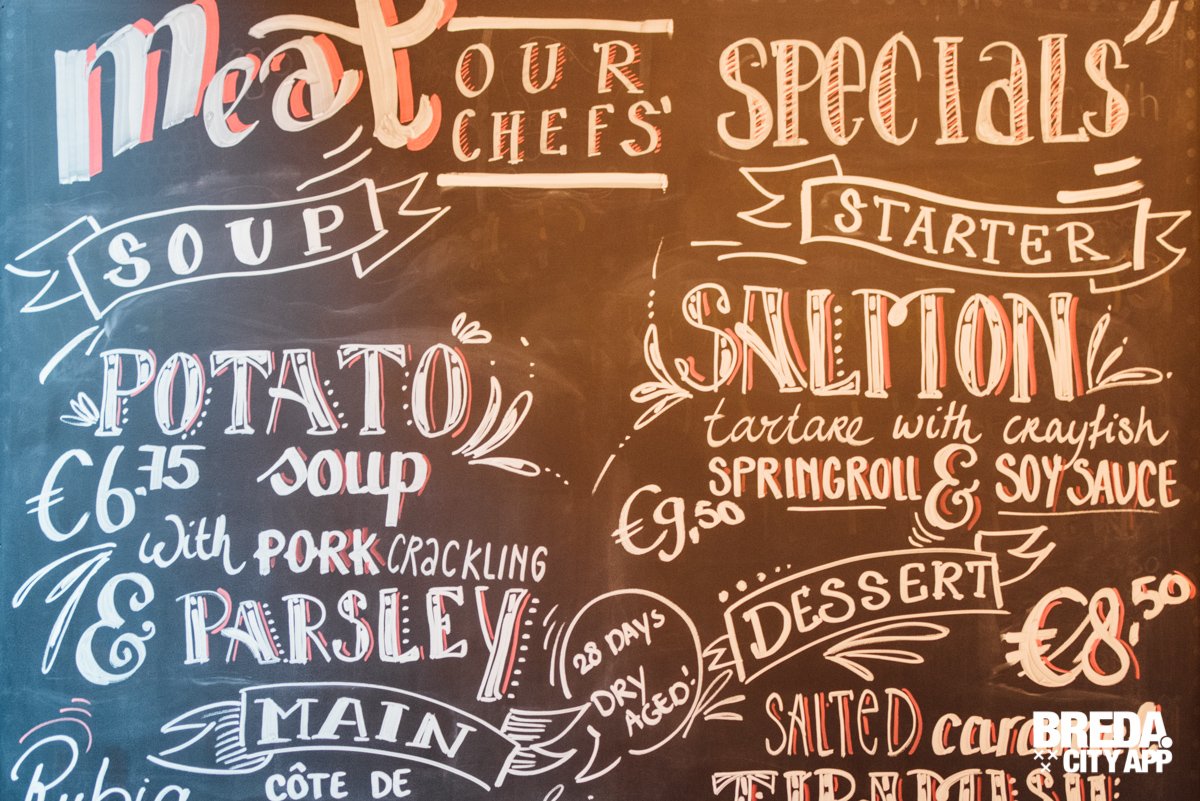 Meat OUR CHEFS' SPECIALS
SOUP
POTATO
€6.75 soup
with PORK CRACKLING
& PARSLEY
STARTER
SALMON
tartare with crayfish
SPRINGROLL & SOY SAUCE
€9,50
DESSERT
€8,50
SALTED
TIRAMISU
28 DAYS
DRY
AGED!
MAIN
Rubia
CÔTE DE
BREDA.
CITY APP